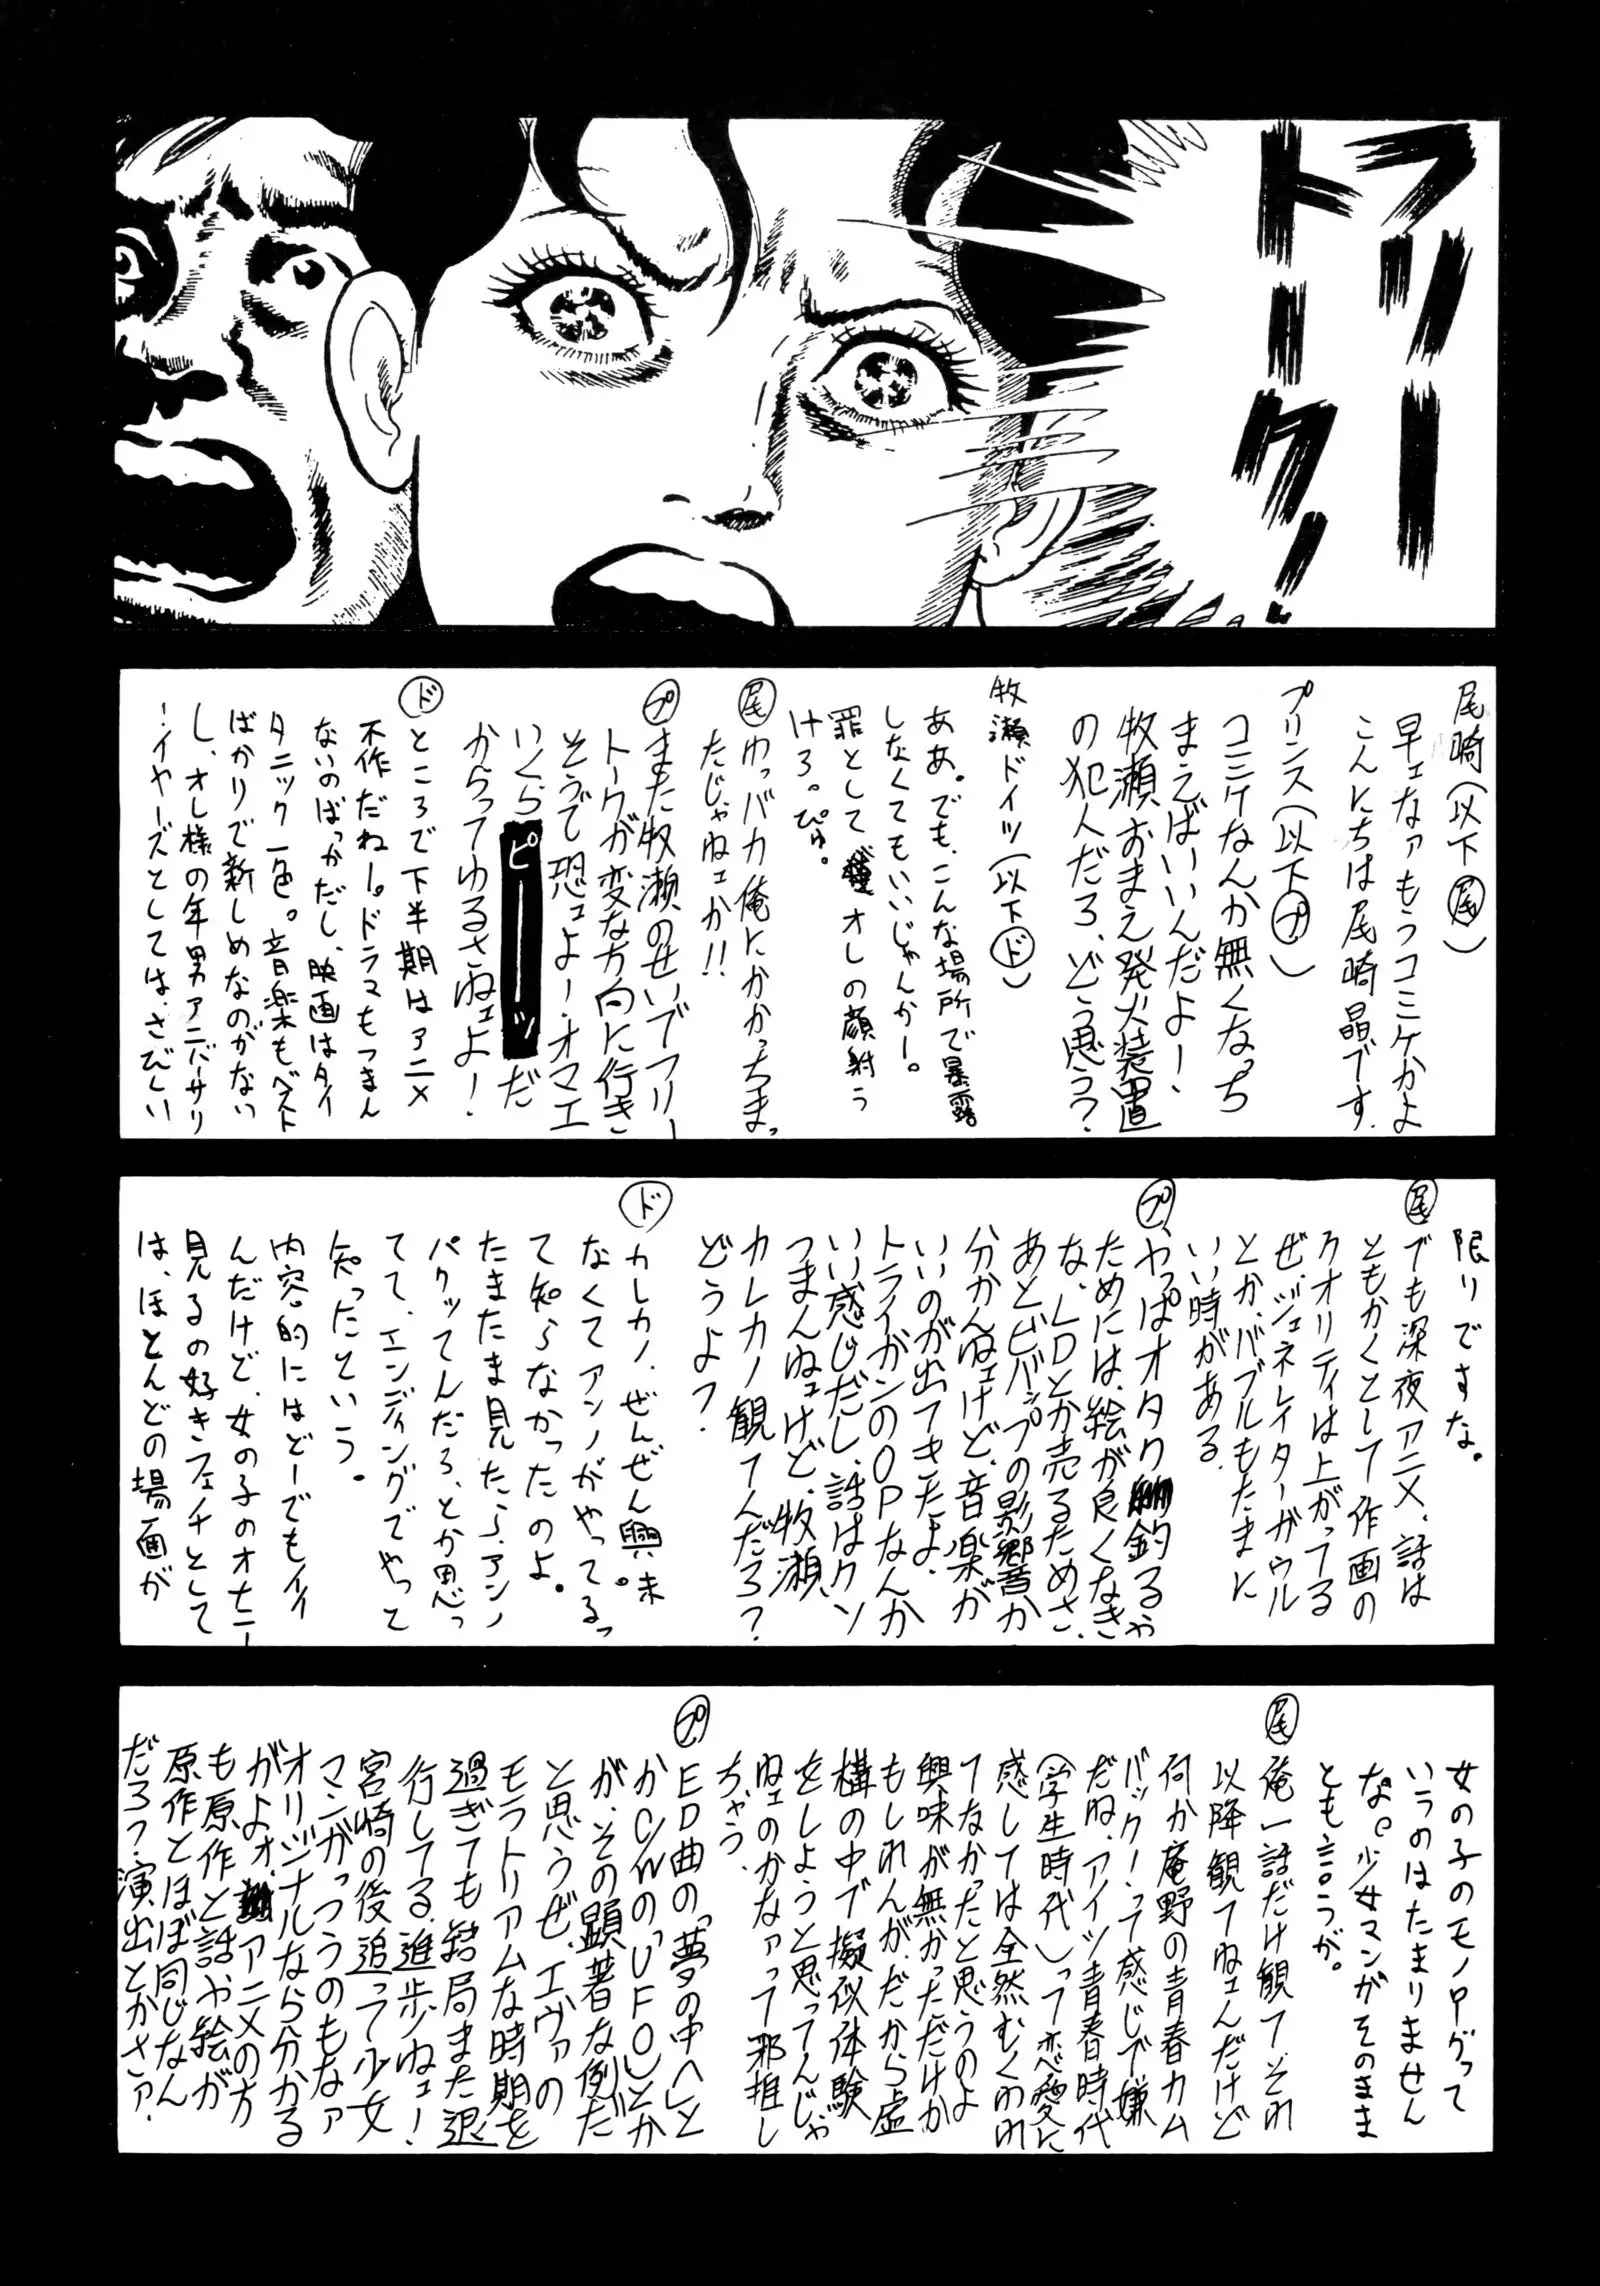 フリー
トーク！
尾崎（以下尾）
早ェなァもうコミケかよ
こんにちは尾崎晶です.
プリンス（以下プ）
コミケなんか無くなっち
まえばいいんだよー、
牧瀬おまえ発火装置
の犯人だろ、どう思う？
牧瀬ドイツ（以下ド）
ああ。でも、こんな場所で暴露
しなくてもいいじゃんかー。
罪として オレの顔射う
けろ。ぴゅ。
尾 ゆっバカ俺にかかっちまっ
たじゃねェか!!
プ また牧瀬のせいでフリー
トークが変な方向に行き
そうで恐ェよー！オマエ
いくらピーーーッだ
からってゆるさねェよ！
ド ところで下半期はアニメ
不作だねー。ドラマもつまん
ないのばっかだし、映画はタイ
タニック一色。音楽もベスト
ばかりで新しめなのがない
し、オレ様の年男アニバーサリ
ー・イヤーズとしては、さびしい
限りですな。
尾 でも深夜アニメ、話は
ともかくとして作画の
クオリティは上がってる
ぜ、ジェネレイターガウル
とか、バブルもたまに
いい時がある.
プ やっぱオタク釣るや
ためには、絵が良くなき
な、LDとか売るためさ.
あとビバップの影響か
分かんねェけど、音楽が
いいのが出てきたよ.
トライガンのOPなんか
いい感じだし、話はクソ
つまんねェけど、牧瀬、
カレカノ観てんだろ？
どうよ？
ド カレカノ、ぜんぜん興味
なくてアンノがやってるっ
て知らなかったのよ。
たまたま見たら、アンノ
パクッてんだろ、とか思っ
てて、エンディングでやっ
知ったという。
内容的にはどーでもイイ
んだけど、女の子のオナニー
見るの好きフェチとして
は、ほとんどの場面が
女の子のモノローグって
いうのはたまりません
な。少女マンがそのまま
とも言うが。
尾 俺一話だけ観て、それ
以降観てねェんだけど
何か庵野の青春カム
バックー！って感じで嫌
だね、アイツ青春時代
（学生時代）って恋愛に
感しては全然むくわれ
てなかったと思うのよ
興味が無かっただけか
もしれんが、だから虚
構の中で擬似体験
をしようと思ってんじゃ
ねェのかなァって邪推し
ちゃう.
プ ED曲の「夢の中へ」と
かC/Wの「UFO」とか
が、その顕著な例だ
と思うぜ、エヴァの
モラトリアムな時期を
過ぎても結局また退
行してる、進歩ねェ！
宮崎の後追って少女
マンガっつうのもなァ
オリジナルなら分かる
がよォ、アニメの方
も原作と話や絵が
原作とほぼ同じなん
だろ？演出とかさァ.